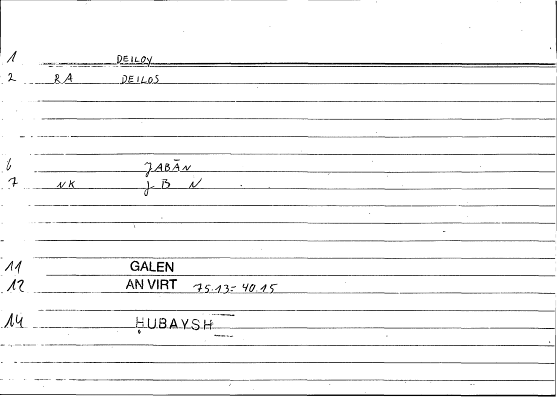 1 DEILOY
2 RA DEILOS
6 JABĀN
7 NK J B N
11 GALEN
12 AN VIRT 75.13 = 40.15
14 ḤUBAYSH